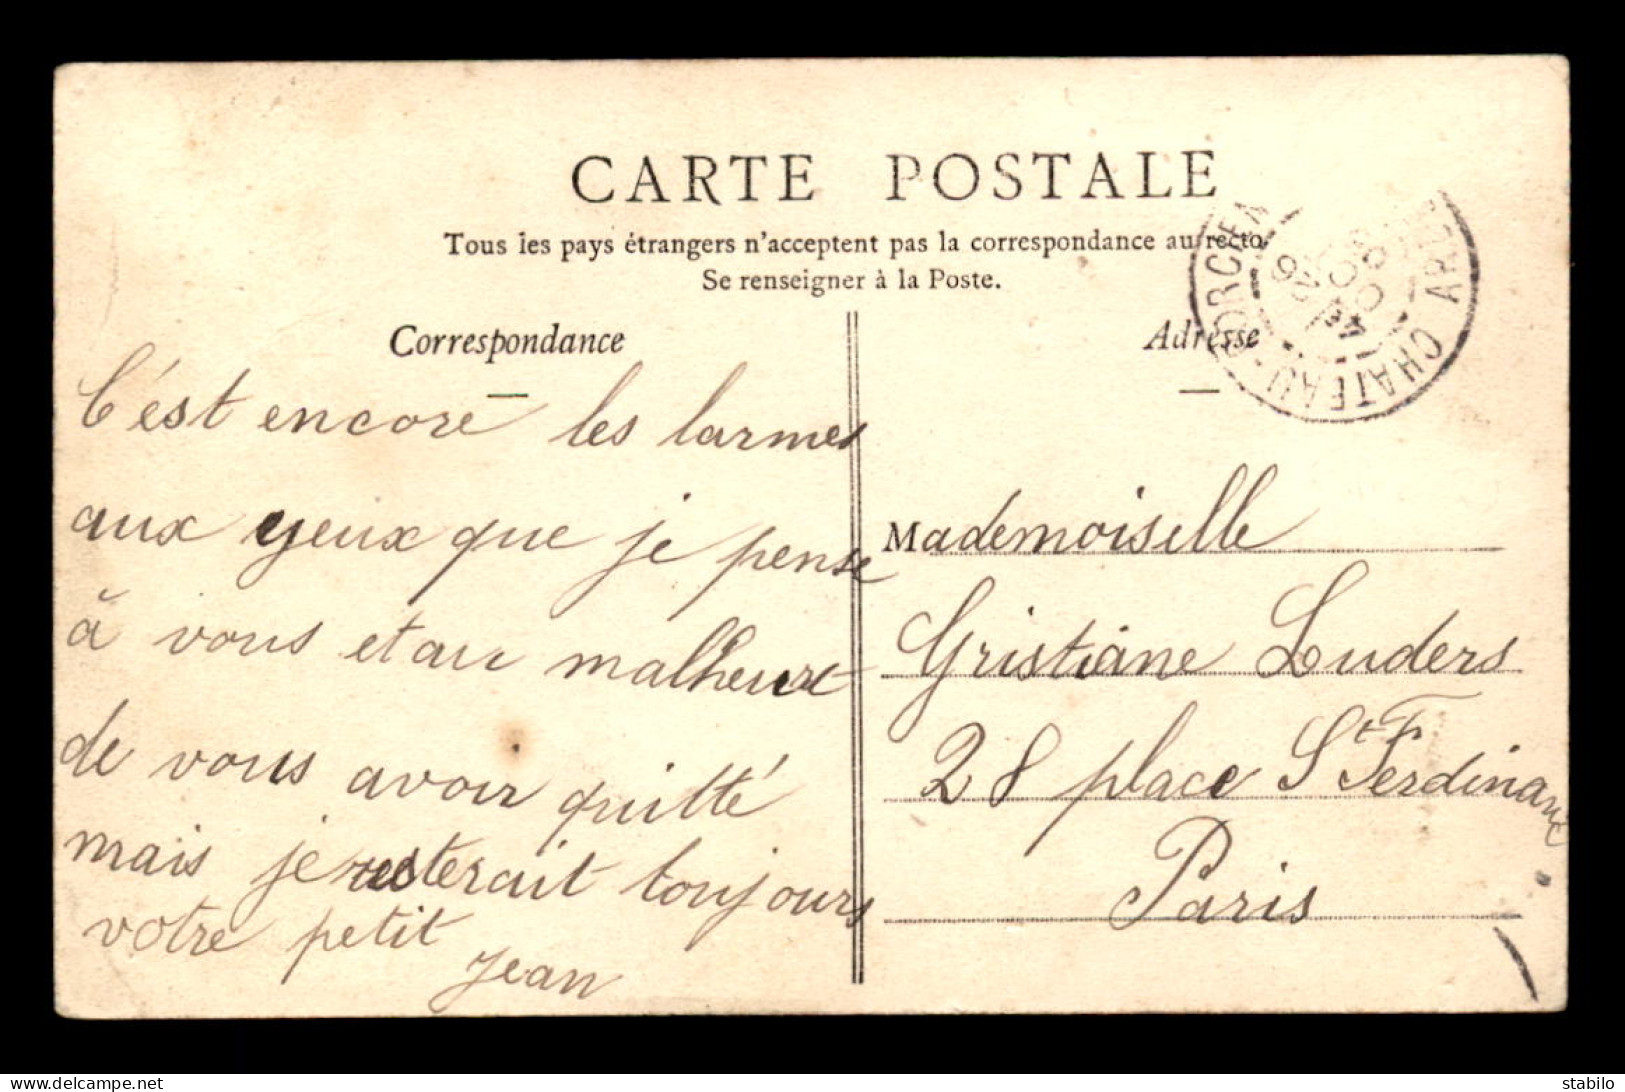 CARTE POSTALE
Tous les pays étrangers n'acceptent pas la correspondance au recto
Se renseigner à la Poste.
Correspondance
C'est encore les larmes
aux yeux que je pense
à vous et au malheur
de vous avoir quitté
mais je resterait toujours
votre petit
Jean
Adresse
CHATEAU-PORCIEN
Mademoiselle
Gristiane Luders
28 place St Ferdinand
Paris
Delcampe.net
stabilo